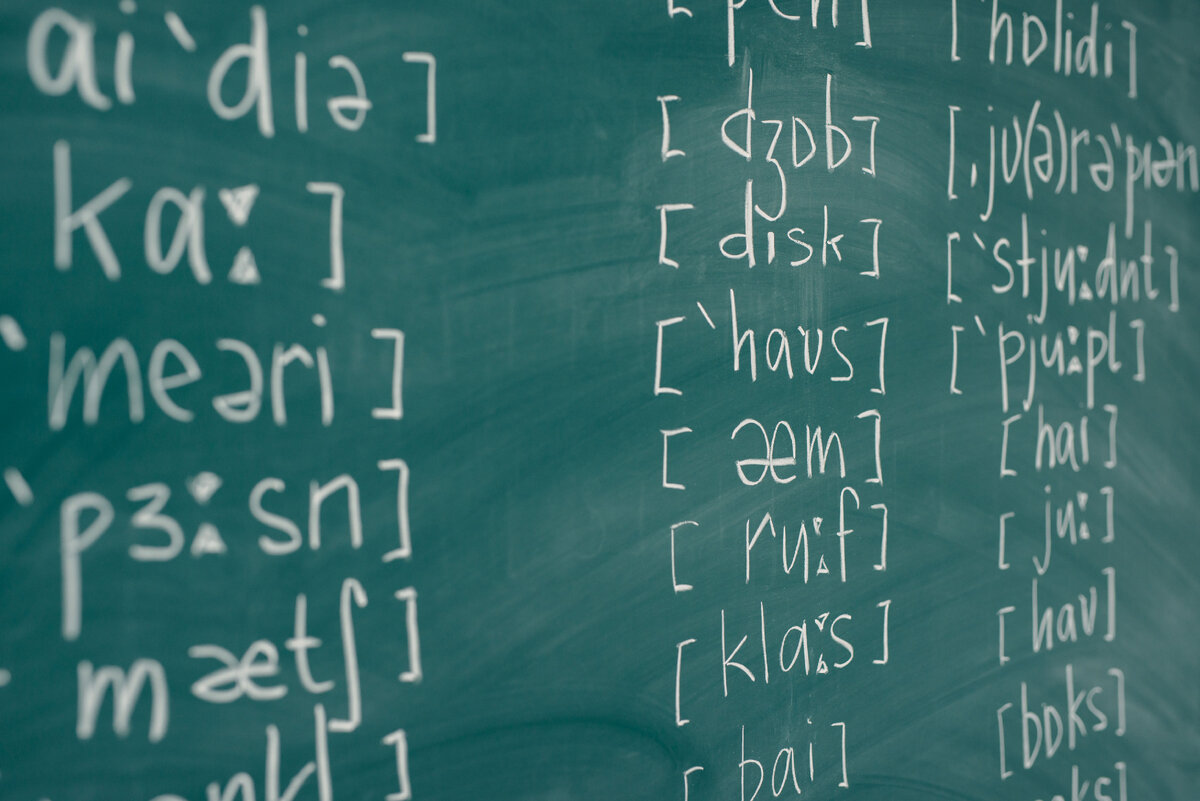 ai ˋdiə ]
kaː ]
ˋmeəri ]
ˋpɜː sn ]
mætʃ ]
[ pen ]
[ dʒɒb ]
[ disk ]
[ ˋhaʊs ]
[ æm ]
[ ruːf ]
[ klaːs ]
[ bai ]
[ ˋhɒlidi ]
[ˌjʊ(ə)rəˋpɪən
[ ˋstjuːdnt ]
[ ˋpjuːpl ]
[ hai ]
[ juː ]
[ haʊ ]
[bɒks ]